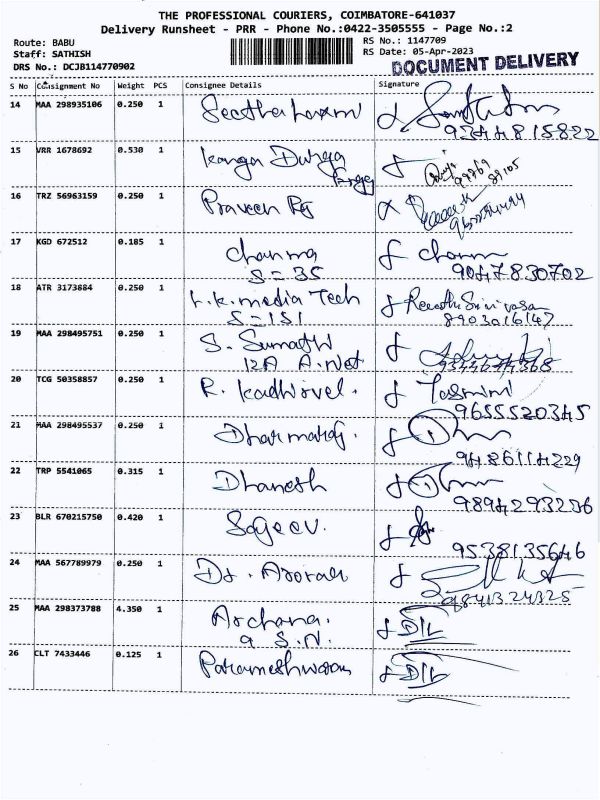 THE PROFESSIONAL COURIERS, COIMBATORE-641037
Delivery Runsheet - PRR - Phone No.:0422-3505555 - Page No.:2
Route: BABU
Staff: SATHISH
DRS No.: DCJB114770902
RS No.: 1147709
RS Date: 05-Apr-2023
DOCUMENT DELIVERY
S No Consignment No Weight PCS Consignee Details Signature
14 MAA 298935106 0.250 1
93448 15822
15 VRR 1678692 0.530 1 Kanga Durga
99769
89105
16 TRZ 56963159 0.250 1 Praveen
17 KGD 672512 0.185 1 Chanma
S = 35
90478 30702
18 ATR 3173884 0.250 1 r.k. media Tech
S = 151
8903016147
19 MAA 298495751 0.250 1 S. Sumathi
12A A.
20 TCG 50358857 0.250 1 R. Kadhirvel. Yasmin
9655520345
21 MAA 298495537 0.250 1 Dharmaraj.
9486114229
22 TRP 5541065 0.315 1 Dhanesh
9894293236
23 BLR 670215750 0.420 1 Sajeev.
9538135646
24 MAA 567789979 0.250 1 Dr.
9841324325
25 MAA 298373788 4.350 1 Archana. D/L
9 S.N.
26 CLT 7433446 0.125 1 Parameshwaran D/L